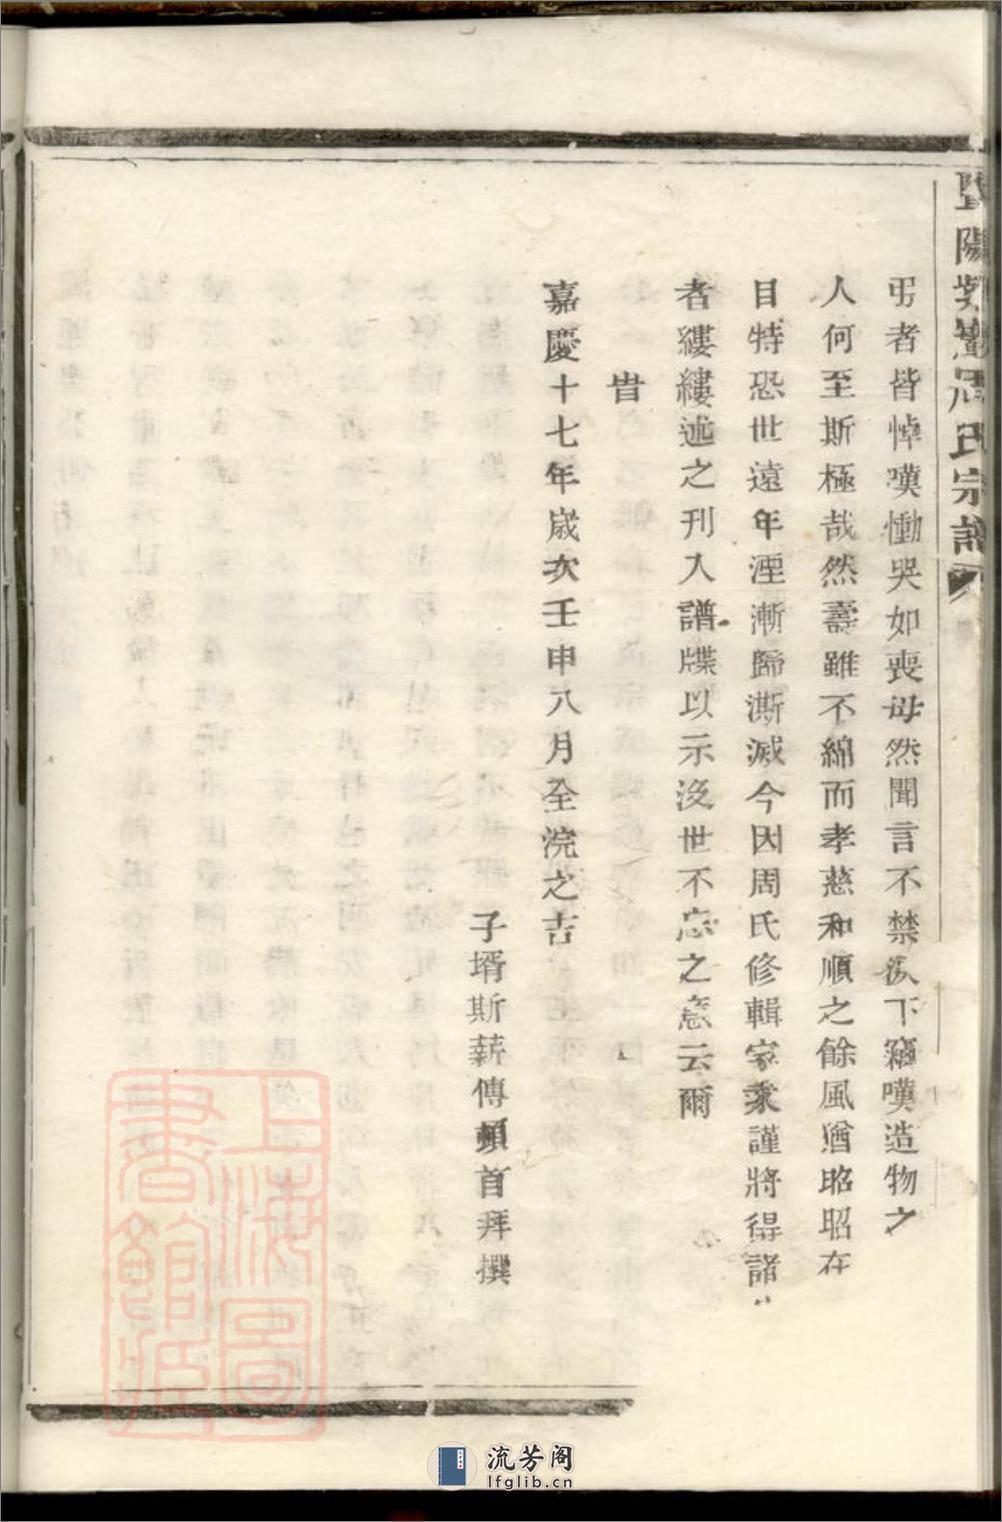 陽紫巖周氏宗譜
弔者皆悼嘆慟哭如喪母然聞言不禁淚下竊嘆造物之
人何至斯極哉然壽雖不綿而孝慈和順之餘風猶昭昭在
目特恐世遠年湮漸歸澌滅今因周氏修輯家乘謹將得諸
者縷縷述之刊入譜牒以示沒世不忘之意云爾
旹
嘉慶十七年歲次壬申八月全浣之吉
子壻斯薪傳頓首拜撰
上海圖書館藏
流芳阁
lfglib.cn